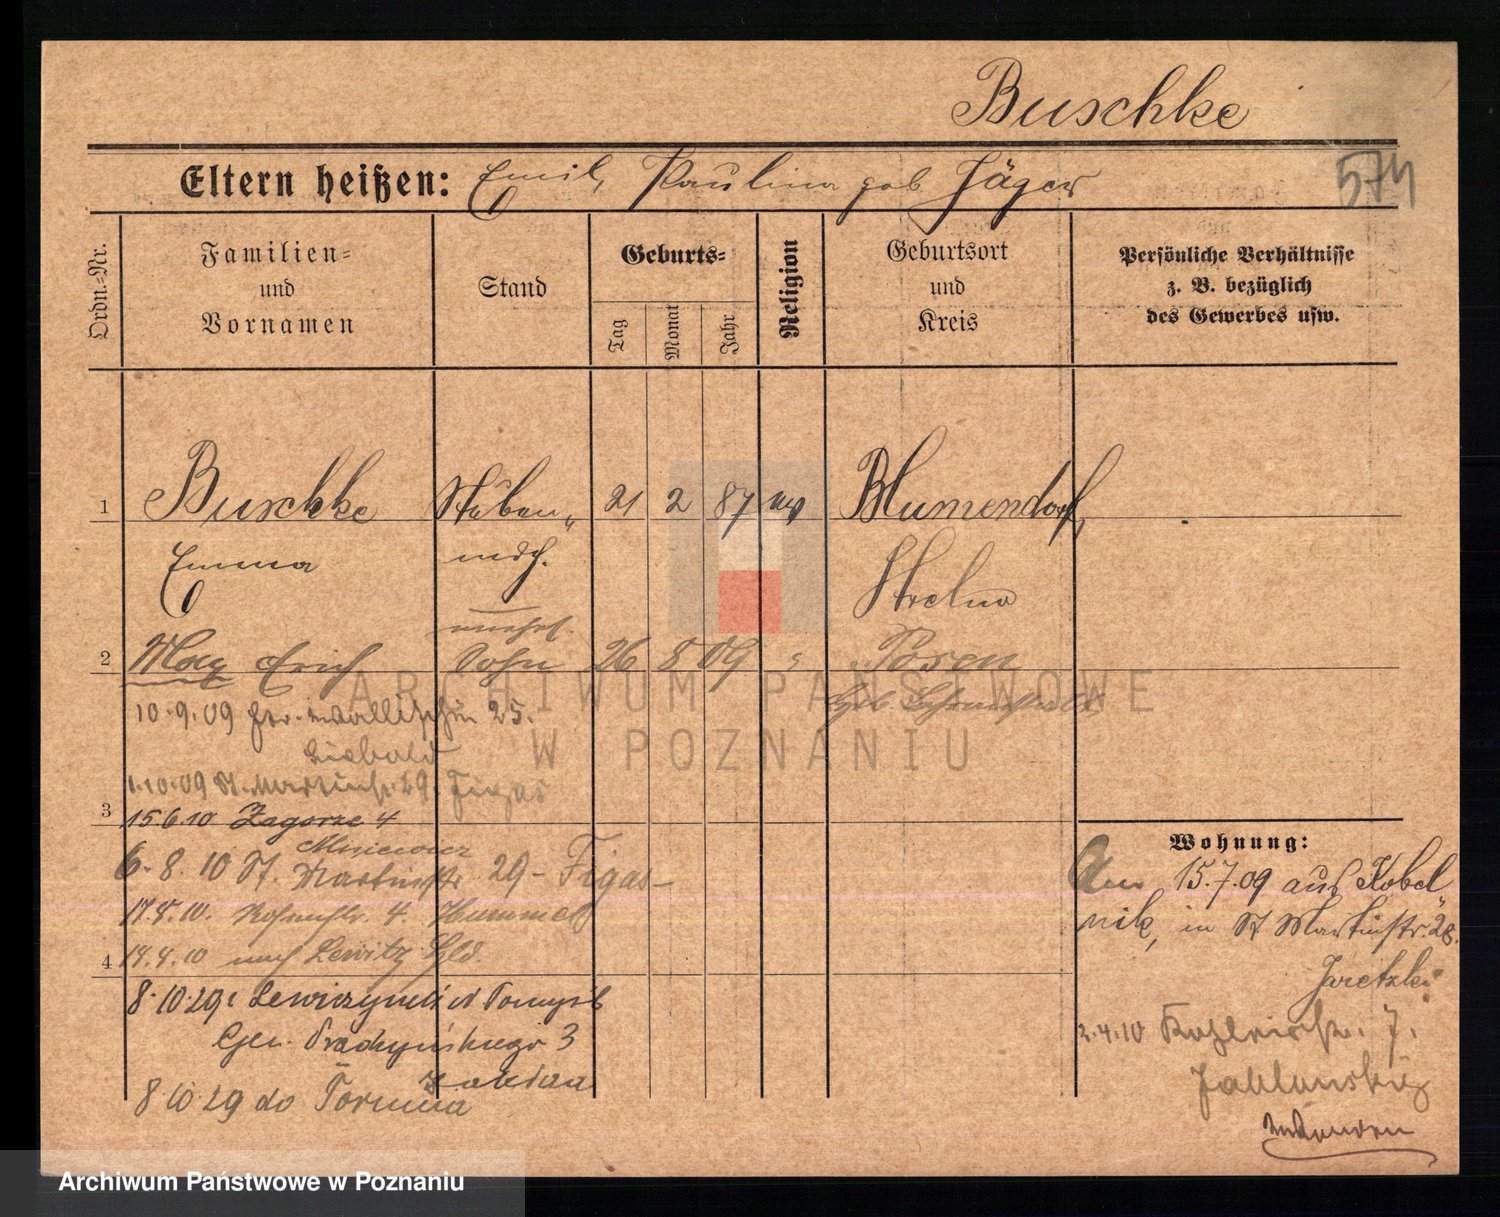 Buschke
574
Eltern heißen: Emil, Paulina geb Jäger
Ordn.=Nr.
Familien=
und
Vornamen
Stand
Geburts=
Tag
Monat
Jahr
Religion
Geburtsort
und
Kreis
Persönliche Verhältnisse
z. B. bezüglich
des Gewerbes usw.
1 Buschke Stuben 21 2 87 ev Blumendorf,
Emma mdch. Strelno
unehel.
2 Max Erich Sohn 26 8 09 " Posen
10.9.09 25.
Liebald
1.10.09 St. Martinstr. 29. Figas
3
15.6.10 Zagorze 4
6.8.10 St. Martinstr 29 - Figas -
17.8.10. 4. Hummel
4 19.8.10 nach Lewitz Hld.
8.10.29 z
Gen. Prądzyńskiego 3
8.10.29 do Torunia
Wohnung:
Am 15.7.09 aus Kobel
nik, in St Martinstr. 28.
Jaretzki
2.4.10 7.
Jablonski
ARCHIWUM PAŃSTWOWE
W POZNANIU
Archiwum Państwowe w Poznaniu